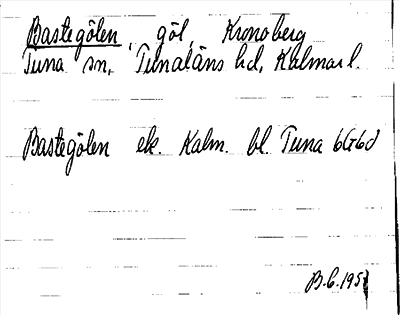 Bastegölen, göl, Kronoberg
Tuna sn, Tunaläns hd, Kalmar l.
Bastegölen ek. Kalm. bl. Tuna 6G6d
B.C.195